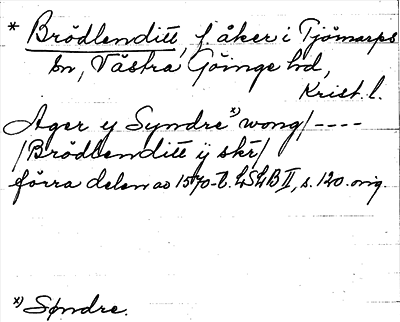 * Brödlenditt, f. åker i Tjömarps
sn, Västra Göinge hd,
Krist. l.
Ager y Syndre x) wong/----
/Brödlenditt ij skr/
förra delen av 1570-t. LSLB II, s. 120. orig.
x) Søndre.